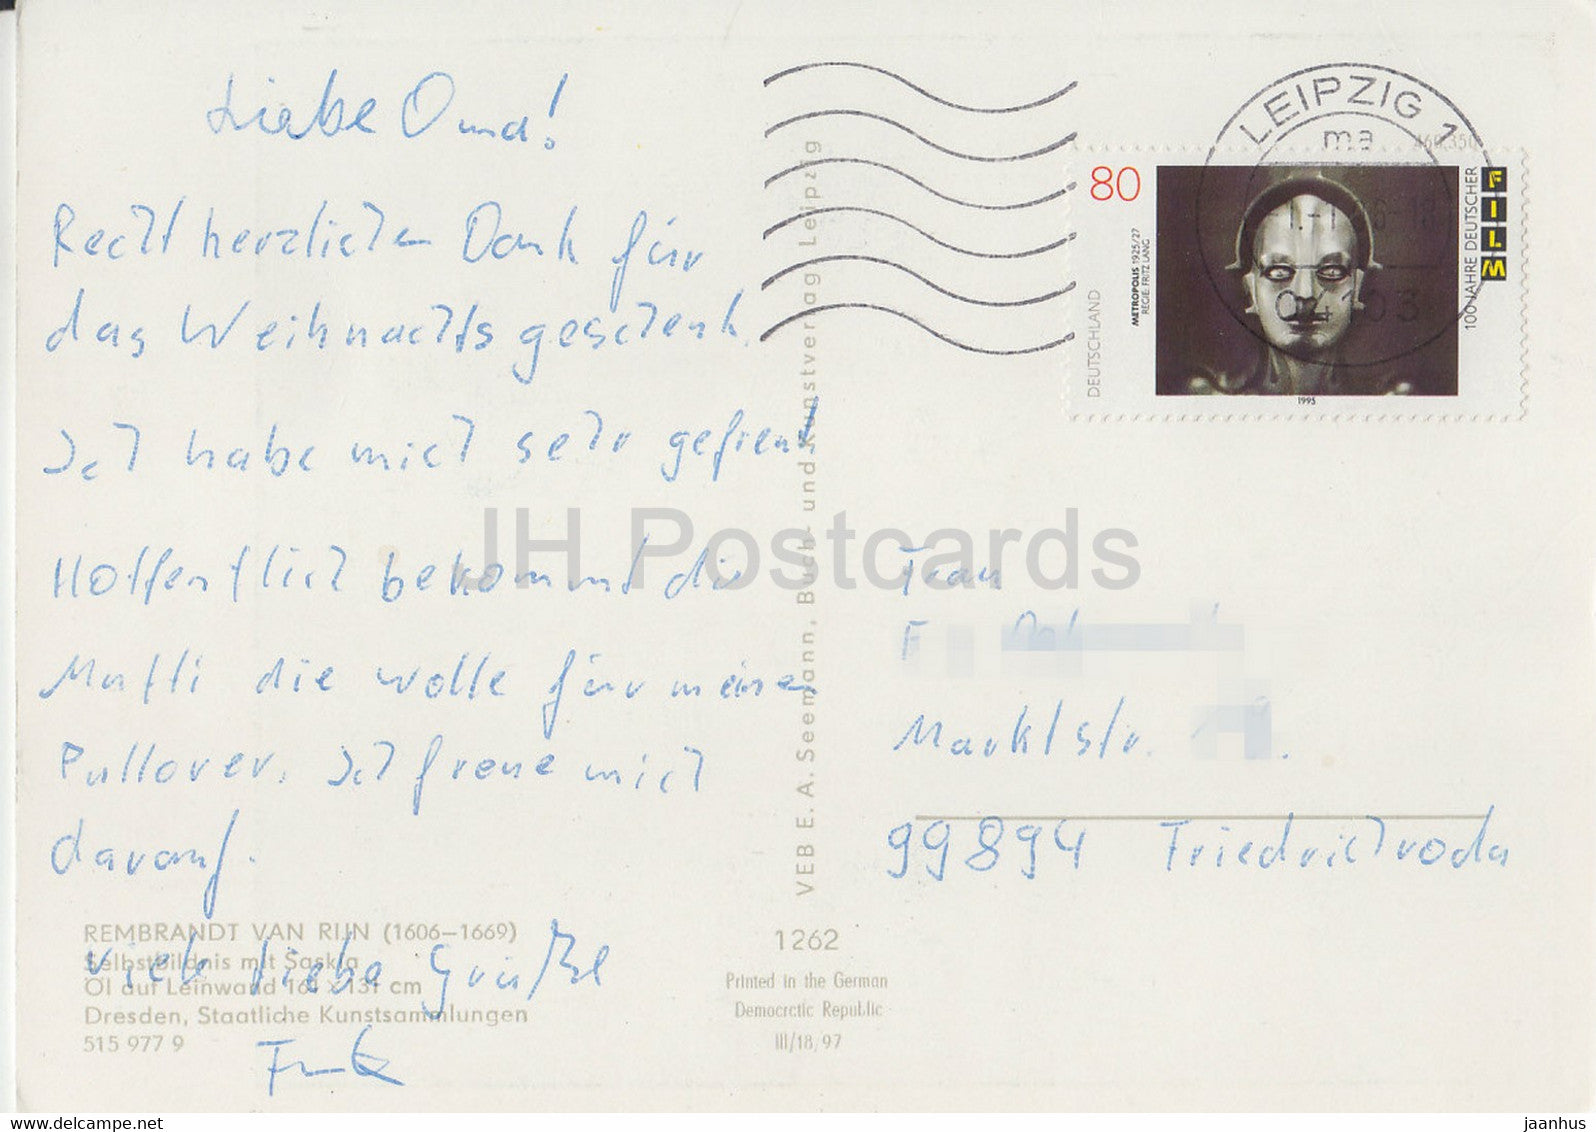 Liebe Oma!
Recht herzlichen Dank für
das Weihnachtsgeschenk.
Ich habe mich sehr gefreut
Hoffentlich bekommt die
Mutti die Wolle für meinen
Pullover. Ich freue mich
darauf.
Viele liebe Grüße
REMBRANDT VAN RIJN (1606–1669)
Selbstbildnis mit Saskia
Öl auf Leinwand 161 × 131 cm
Dresden, Staatliche Kunstsammlungen
515 977 9
VEB E. A. Seemann, Buch- und Kunstverlag Leipzig
1262
Printed in the German
Democratic Republic
III/18, 97
LEIPZIG 1
ma
04103
80
DEUTSCHLAND
METROPOLIS 1925/27
REGIE: FRITZ LANG
1995
100 JAHRE DEUTSCHER
FILM
Frau
F
Marktstr.
99894 Friedrichroda
JH Postcards
www.delcampe.net
jaanhus